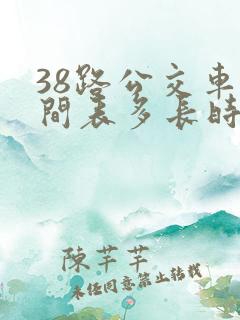 38路公交車時
間表多長時
陳芊芊
未經同意禁止轉載